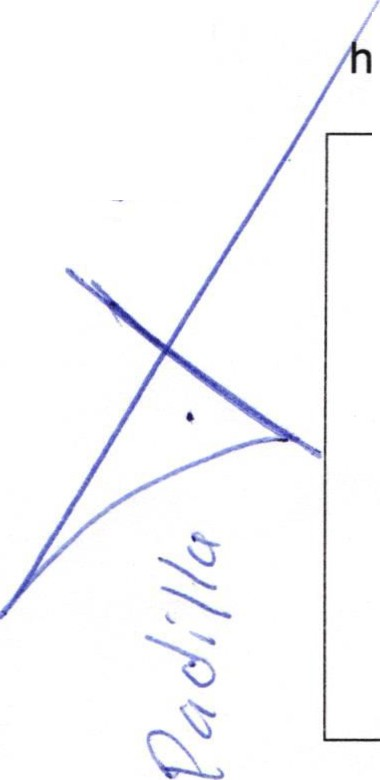 h
Padilla